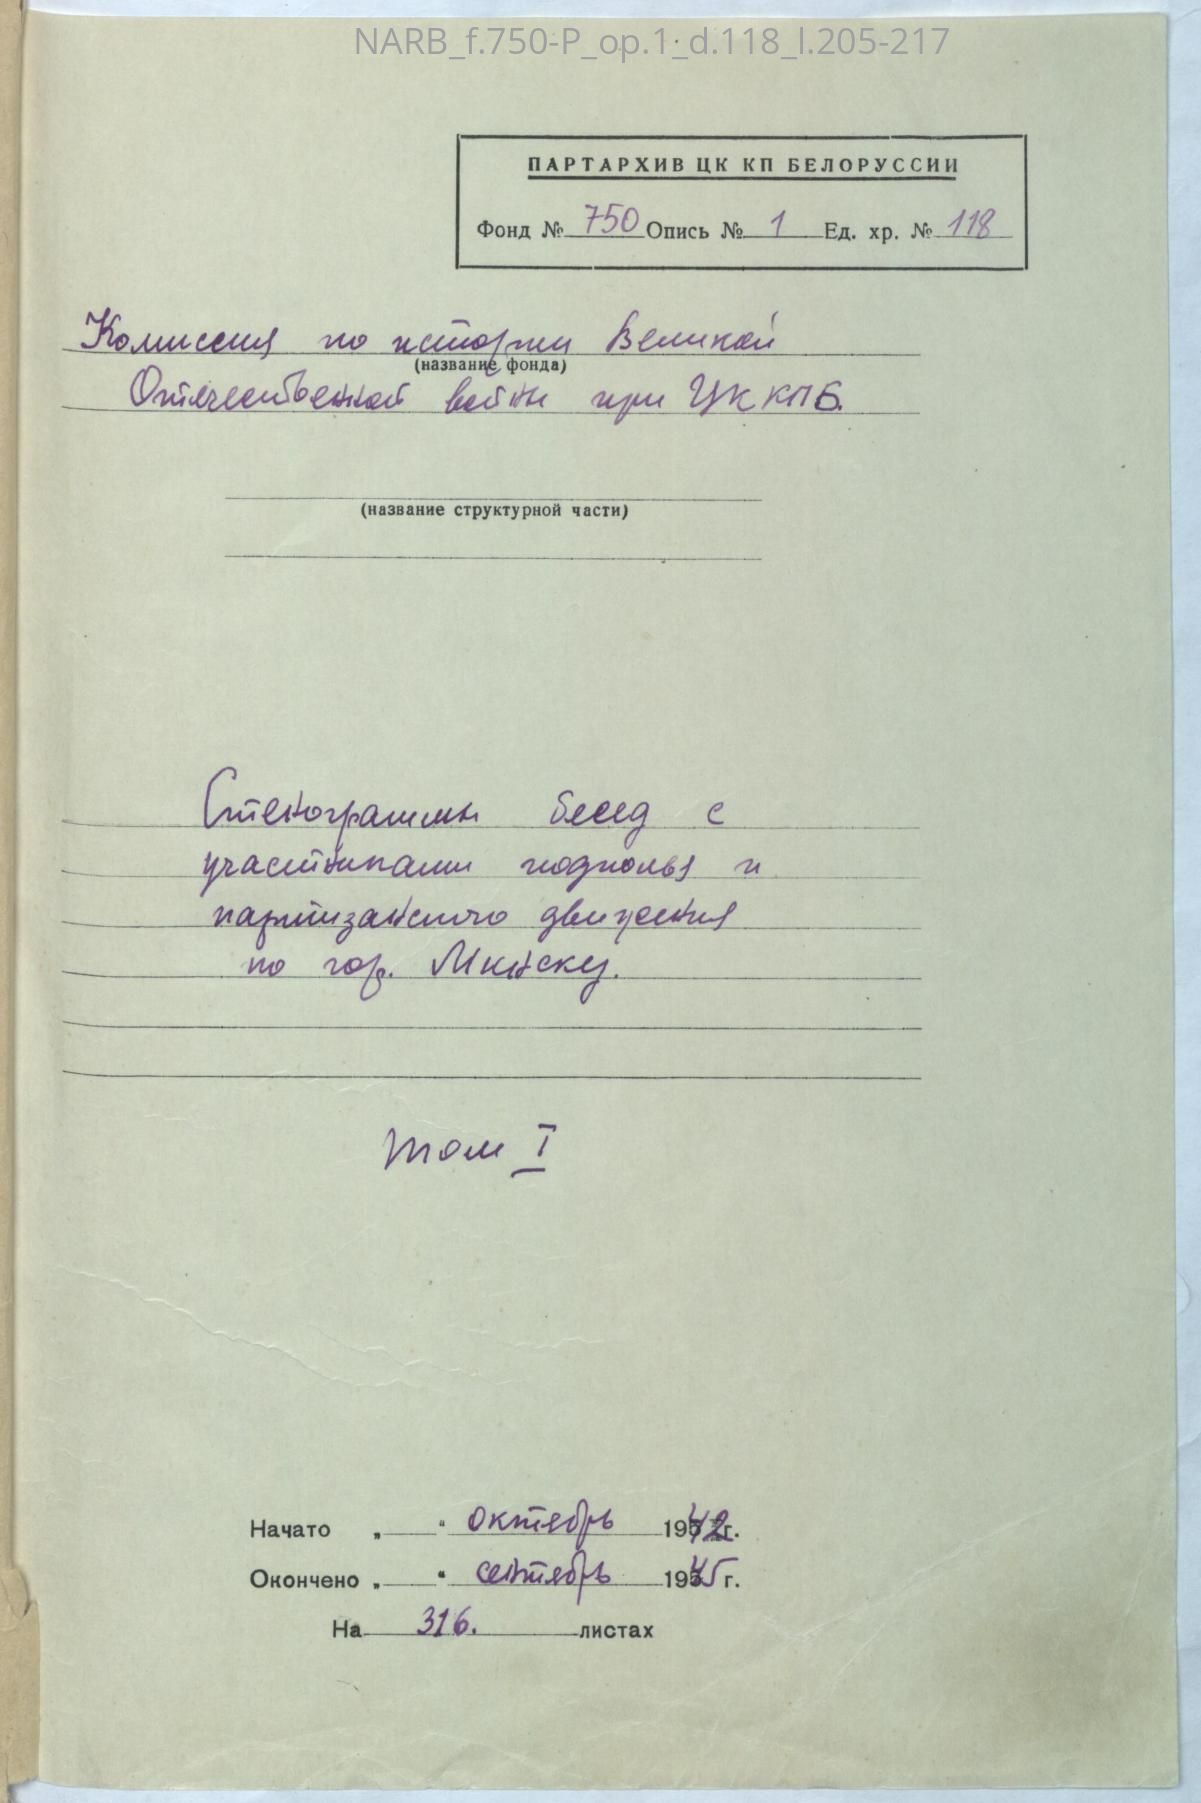 NARB_f.750-P_op.1_d.118_l.205-217
ПАРТАРХИВ ЦК КП БЕЛОРУССИИ
Фонд № 750 Опись № 1 Ед. хр. № 118
Комиссия по истории Великой
(название фонда)
Отечественной войны при ЦК КПБ.
(название структурной части)
Стенограммы бесед с
участниками подполья и
партизанского движения
по гор. Минску.
том I
Начато „ “ октябрь 1942 г.
Окончено „ “ сентябрь 1945 г.
На 316. листах